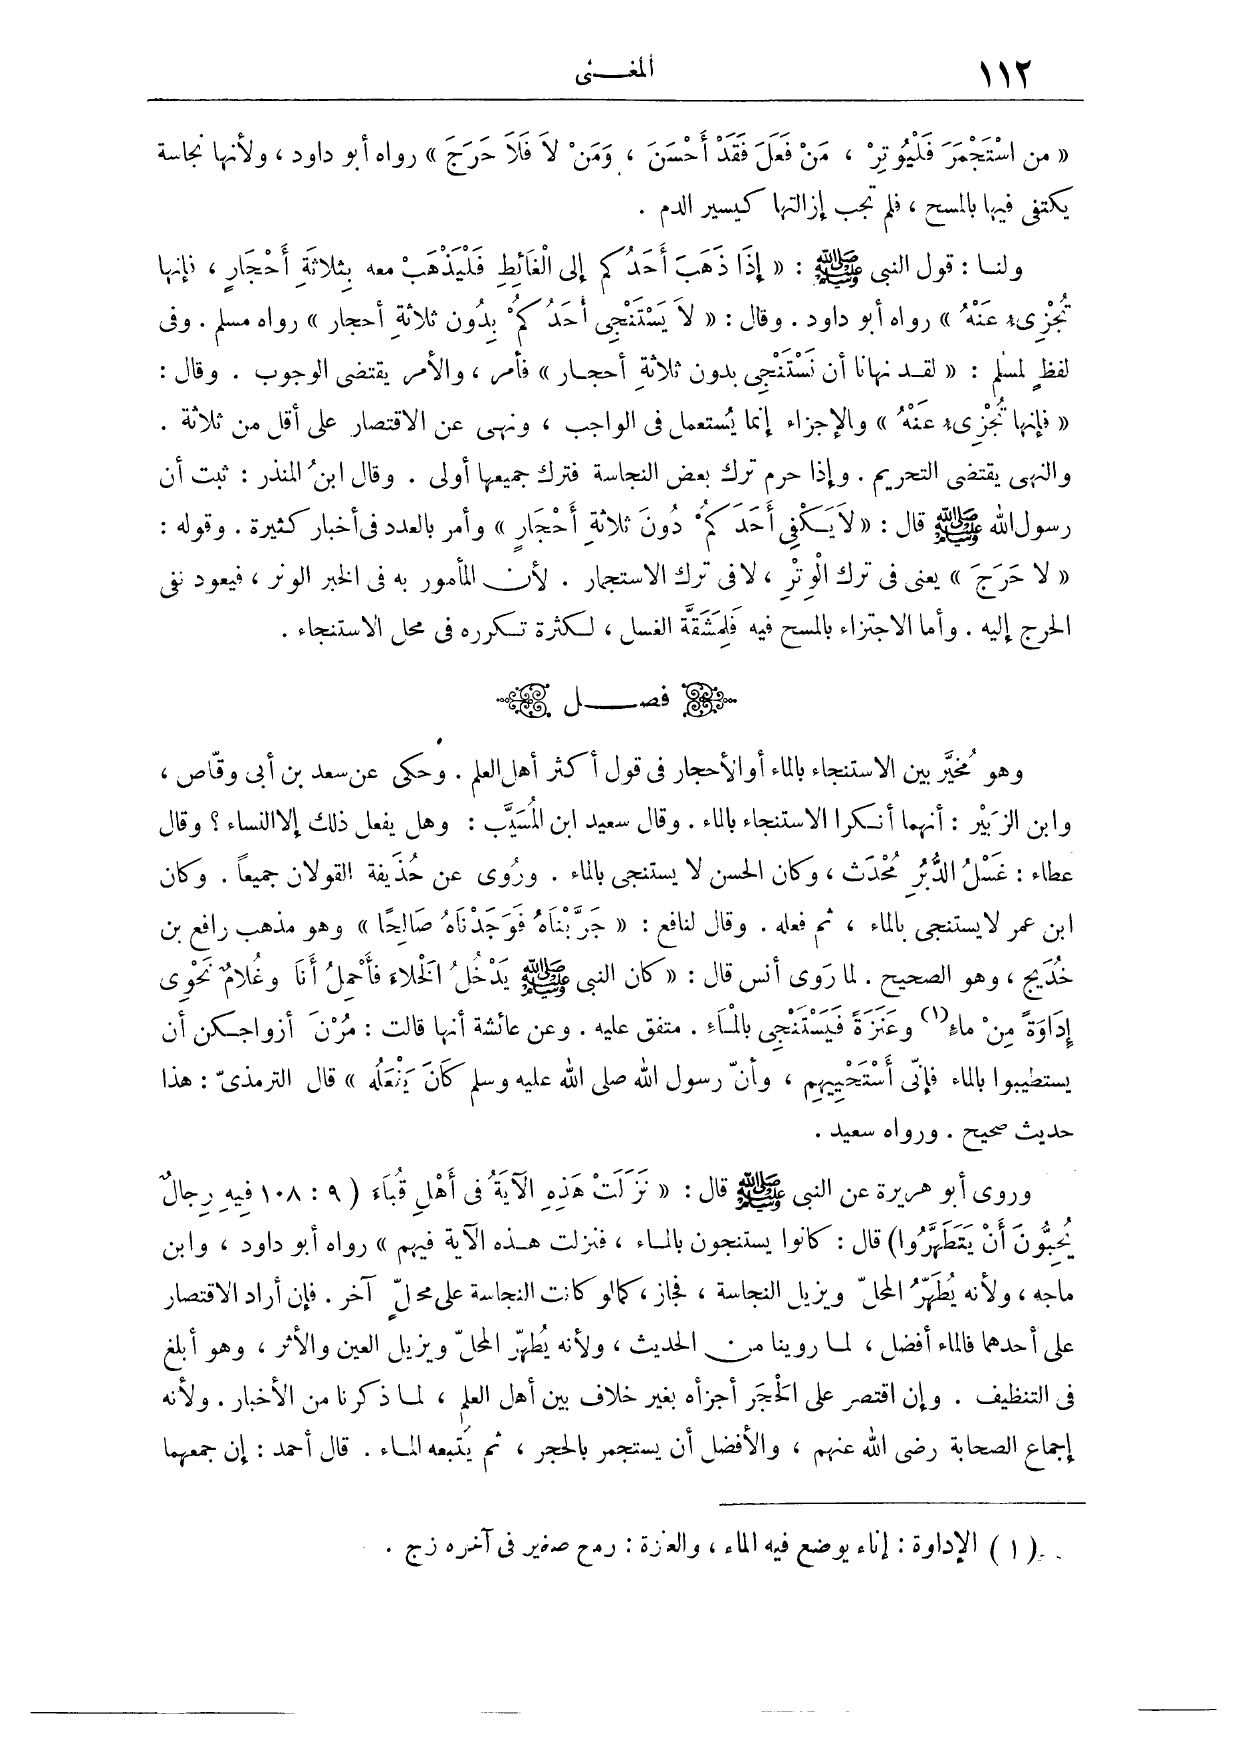 ١١٢
المغـــنى
« من اسْتَجْمَرَ فَلْيُوتِرْ ، مَنْ فَعَلَ فَقَدْ أَحْسَنَ ، وَمَنْ لاَ فَلاَ حَرَجَ » رواه أبو داود ، ولأنها نجاسة
يكتفى فيها بالمسح ، فلم تجب إزالتها كيسير الدم .
ولنـا : قول النبى ﷺ : « إِذَا ذَهَبَ أَحَدُكم إلى الْغَائِطِ فَلْيَذْهَبْ معه بِثَلاثَةِ أَحْجَارٍ ، فإنها
تُجْزِىءُ عَنْهُ » رواه أبو داود . وقال : « لاَ يَسْتَنْجِى أَحَدُكُمْ بِدُون ثلاثةِ أحجار » رواه مسلم . وفى
لفظٍ لمسْلم : « لقـد نهانا أن نَسْتَنْجِى بدون ثلاثةِ أحجـار » فأمر ، والأمر يقتضى الوجوب . وقال :
« فإنها تُجْزِىءُ عَنْهُ » والإجزاء إنما يُستعمل فى الواجب ، ونهى عن الاقتصار على أقل من ثلاثة .
والنهى يقتضى التحريم . وإذا حرم ترك بعض النجاسة فترك جميعها أولى . وقال ابنُ المنذر : ثبت أن
رسول الله ﷺ قال : « لاَ يَـكْفِى أَحَدَكُمْ دُونَ ثلاثةِ أَحْجَارٍ » وأمر بالعدد فى أخبار كثيرة . وقوله :
« لا حَرَجَ » يعنى فى ترك الْوِتْرِ ، لا فى ترك الاستجمار . لأن المأمور به فى الخبر الوتر ، فيعود نفى
الحرج إليه . وأما الاجتزاء بالمسح فيه فَلِمَشَقَّةِ الغسل ، لـكثرة تـكرره فى محل الاستنجاء .
فصـــــل
وهو مُخيَّر بين الاستنجاء بالماء أو الأحجار فى قول أكثر أهل العلم . وحكى عن سعد بن أبى وقّاص ،
وابن الزبَيْر : أنهما أنـكرا الاستنجاء بالماء . وقال سعيد ابن المُسَيَّب : وهل يفعل ذلك إلا النساء ؟ وقال
عطاء : غَسْلُ الدُّبُرِ مُحْدَث ، وكان الحسن لا يستنجى بالماء . ورُوى عن حُذَيفة القولان جميعاً . وكان
ابن عمر لا يستنجى بالماء ، ثم فعله . وقال لنافع : « جَرَّبْنَاهُ فَوَجَدْنَاهُ صَالِحًا » وهو مذهب رافع بن
خُدَيج ، وهو الصحيح . لما رَوى أنس قال : « كان النبى ﷺ يَدْخُلُ الْخلاءَ فأَحْمِلُ أَنَا وغُلامٌ نَحْوِى
إِدَاوَةً مِنْ ماءٍ(١) وعَنَزَةً فَيَسْتَنْجِى بالْمَاءِ . متفق عليه . وعن عائشة أنها قالت : مُرْنَ أزواجـكن أن
يستطيبوا بالماء فإنّى أَسْتَحْيِيهِم ، وأنّ رسول الله صلى الله عليه وسلم كَانَ يَفْعَلُه » قال الترمذىّ : هذا
حديث صحيح . ورواه سعيد .
وروى أبو هريرة عن النبى ﷺ قال : « نَزَلَتْ هَذِهِ الآيَةُ فى أَهْلِ قُبَاءَ ( ٩ : ١٠٨ فِيهِ رِجالٌ
يُحِبُّونَ أَنْ يَتَطَهَّرُوا) قال : كانوا يستنجون بالمـاء ، فنزلت هـذه الآية فيهم » رواه أبو داود ، وابن
ماجه ، ولأنه يُطَهِّرُ المحلّ ويزيل النجاسة ، فجاز ، كما لو كانت النجاسة على محلٍّ آخر . فإن أراد الاقتصار
على أحدهما فالماء أفضل ، لمـا روينا من الحديث ، ولأنه يُطهّر المحلّ ويزيل العين والأثر ، وهو أبلغ
فى التنظيف . وإن اقتصر على الْحَجَر أجزأه بغير خلاف بين أهل العلم ، لمـا ذكرنا من الأخبار . ولأنه
إجماع الصحابة رضى الله عنهم ، والأفضل أن يستجمر بالحجر ، ثم يُتبعه المـاء . قال أحمد : إن جمعهما
( ١ ) الإداوة : إناء يوضع فيه الماء ، والعنزة : رمح صغير فى آخره زج .